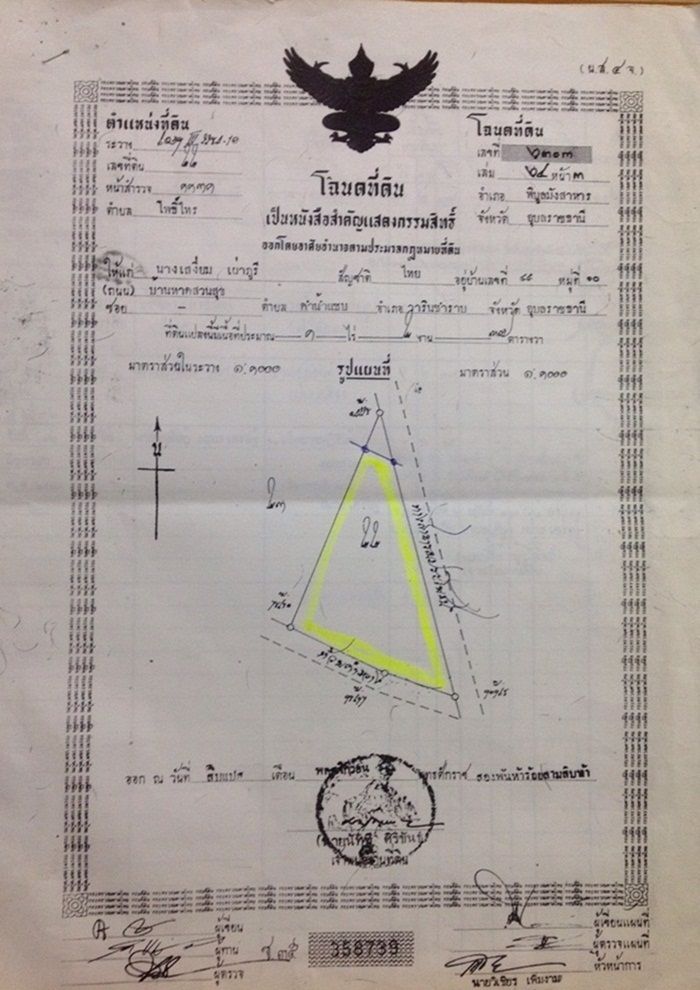 (น.ส. ๔ จ.)
ตำแหน่งที่ดิน
ระวาง
เลขที่ดิน ๒๒
หน้าสำรวจ ๑๑๓๑
ตำบล โพธิ์ไทร
โฉนดที่ดิน
เลขที่ ๖๓๐๓
เล่ม ๖๔ หน้า ๓
อำเภอ พิบูลมังสาหาร
จังหวัด อุบลราชธานี
โฉนดที่ดิน
เป็นหนังสือสำคัญแสดงกรรมสิทธิ์
ออกโดยอาศัยอำนาจตามประมวลกฎหมายที่ดิน
ให้แก่ นางเสงี่ยม เย่าภูรี สัญชาติ ไทย อยู่บ้านเลขที่ หมู่ที่ ๑๐
(ถนน) บ้านหาดสวนสุข
ซอย - ตำบล คำน้ำแซบ อำเภอ วารินชำราบ จังหวัด อุบลราชธานี
ที่ดินแปลงนี้มีเนื้อที่ประมาณ ๑ ไร่ งาน ตารางวา
มาตราส่วนในระวาง ๑:๑๐๐๐ รูปแผนที่ มาตราส่วน ๑:๑๐๐๐
น
๒๓
๒๒
ทางสาธารณประโยชน์
ห้วย
ออก ณ วันที่ สิบแปด เดือน พฤศจิกายน พุทธศักราช สองพันห้าร้อยสามสิบห้า
ศิริขันธ์)
เจ้าพนักงานที่ดิน
ผู้เขียน
ผู้ทาน
ผู้ตรวจ
ช.๓๕
358739
ผู้เขียนแผนที่
ผู้ตรวจแผนที่
หัวหน้าการ
นายวิเชียร เพิ่มงาม